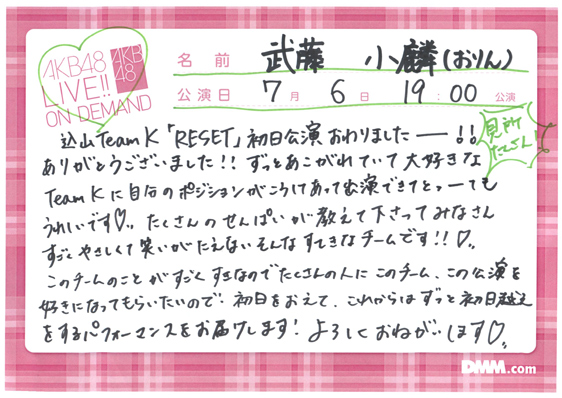 AKB48
LIVE!!
ON DEMAND
AKB
48
名前 武藤 小麟(おりん)
公演日 7月 6日 19:00 公演
見所
たくさん!
込山TeamK「RESET」初日公演おわりましたーー!!
ありがとうございました!!ずっとあこがれていて大好きな
TeamKに自分のポジションがこうしてあって出演できてとっーても
うれしいです♡。たくさんのせんぱいが教えて下さってみなさん
すごくやさしくて笑いがたえないそんなすてきなチームです!!♡。
このチームのことがすごくすきなのでたくさんの人にこのチーム、この公演を
好きになってもらいたいので初日をおえて、これからはずっと初日越え
をするパフォーマンスをお届けします!よろしくおねがいします♡。
DMM.com